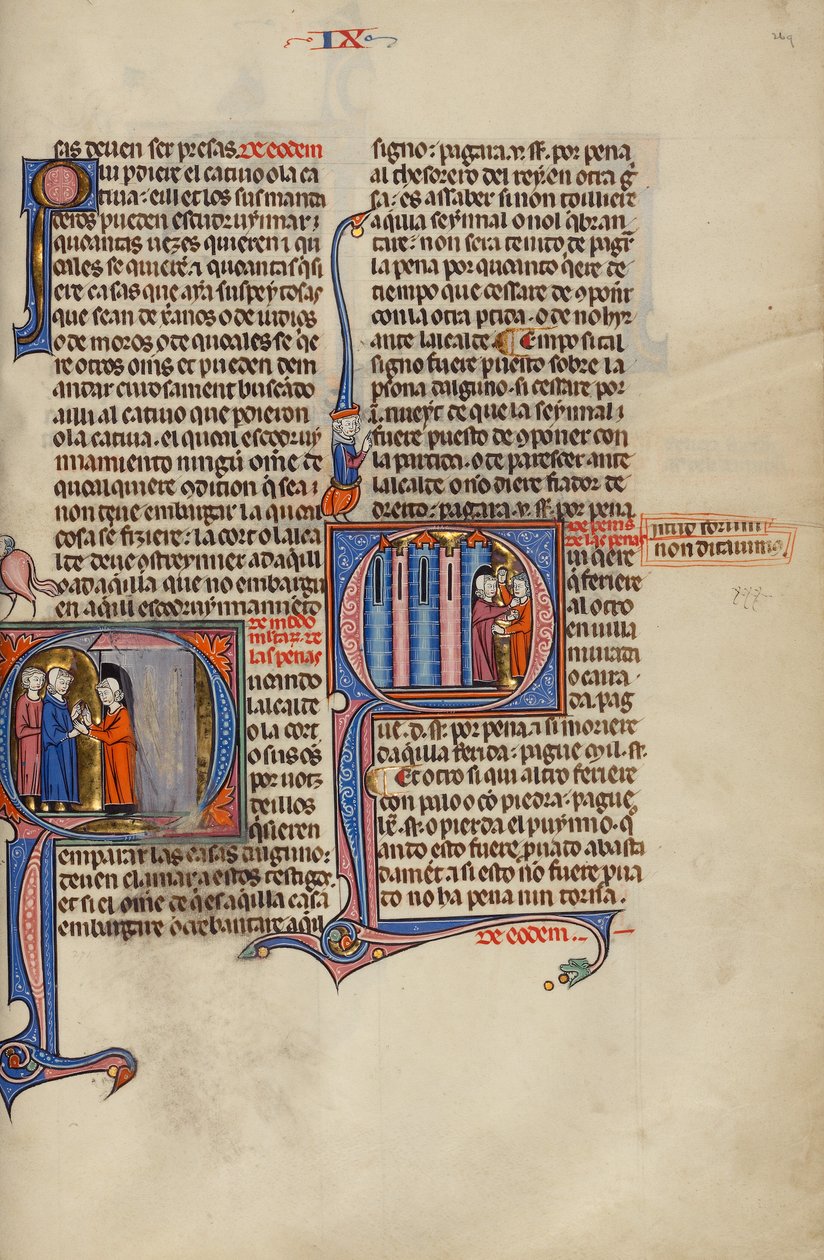 IX
269
sas deuen ser presas. De eodem
Qui pdiere el catiuo o la ca
tiua: eill et los sus manda
deros pueden escudruynnar ⁊
quoantas uezes quieren ⁊ qu
oales se quiere. ⁊ quoantas q̃si
ere casas que aya suspeytosas
que sean de xr̃anos o de iudios
o de moros o de quoales se q̃
re otros om̃s et pueden dem
andar cuydosament buscãdo
aylli al catiuo que pdieron
o la catiua. el quoal escodruy
nnamiento ningũ om̃e de
quoalquiere ɔdition q̃ sea ⁊
non deue embargar la quoal
cosa si fiziere: la cort o lalca
lde deue costreynner ad aq̃ll
o ad aq̃illa que no embargu
en aq̃ill escodruynnamiẽto
las penas
uoando
lalcalde
o la cort
o sus os̃
por uotz
deillos
q̃sieren
emparar las casas dalguno:
deuen clamar a estos testigos.
et si el om̃e de q̃ es aq̃illa casa
embargare o crebantare aq̃il
signo: pagara. v. ss̃. por pena
al thesorero del rey. en otra g̃
sa. es assaber si non tolliere
aq̃illa seynnal o nol q̃bran
tare: non sera tenido de pagr̃
la pena por quoanto q̃ere de
tiempo que cessare de ɔponr̃
con la otra ptida. o de no hyr
ante lalcalde. Empo si tal
signo fuere puesto sobre la
psona dalguno. si cessare por
i. nueyt de que la seynnal ⁊
fuere puesto de ɔponer con
la partida. o de parescer ante
lalcalde o no diere fiador de
dreito: pagara. v. ss̃. por pena
De penis
de las penas
ui q̃ere
q̃ feriere
al otro
en uilla
murada
o caira
da. pag
ue. d. ss̃. por pena. ⁊ si moriere
daq̃illa ferida: pague Mil. ss̃.
Et otro si qui altro feriere
con palo o cõ piedra. pague
o pierda el puynno. q̃
ando esto fuere puado abasta
damẽt. ⁊ si esto nõ fuere pua
do no ha pena nin tornas.
De eodem.
non dicauimus